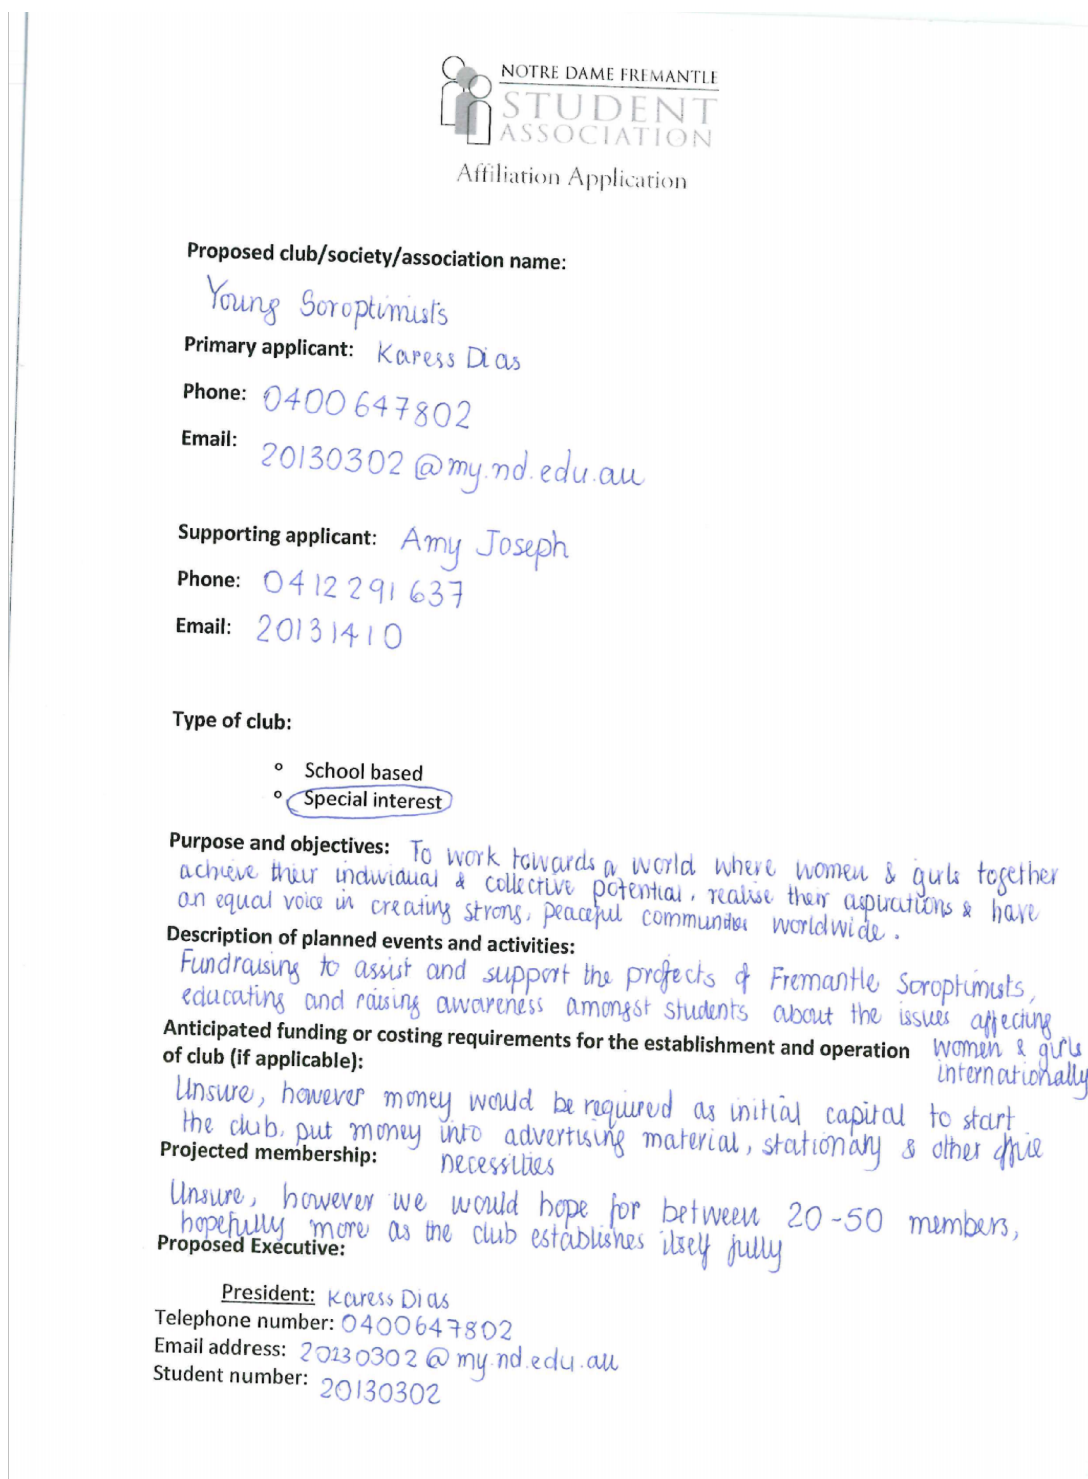 NOTRE DAME FREMANTLE
STUDENT
ASSOCIATION
Affiliation Application
Proposed club/society/association name:
Young Soroptimists
Primary applicant: Karess Dias
Phone: 0400 647802
Email: 20130302@my.nd.edu.au
Supporting applicant: Amy Joseph
Phone: 0412 291 637
Email: 20131410
Type of club:
° School based
° Special interest
Purpose and objectives: To work towards a world where women & girls together
achieve their individual & collective potential, realise their aspirations & have
an equal voice in creating strong, peaceful communities worldwide.
Description of planned events and activities:
Fundraising to assist and support the projects of Fremantle Soroptimists,
educating and raising awareness amongst students about the issues affecting
women & girls
internationally
Anticipated funding or costing requirements for the establishment and operation
of club (if applicable):
Unsure, however money would be required as initial capital to start
the club, put money into advertising material, stationary & other office
necessities
Projected membership:
Unsure, however we would hope for between 20-50 members,
hopefully more as the club establishes itself fully
Proposed Executive:
President: Karess Dias
Telephone number: 0400647802
Email address: 20130302@my.nd.edu.au
Student number: 20130302